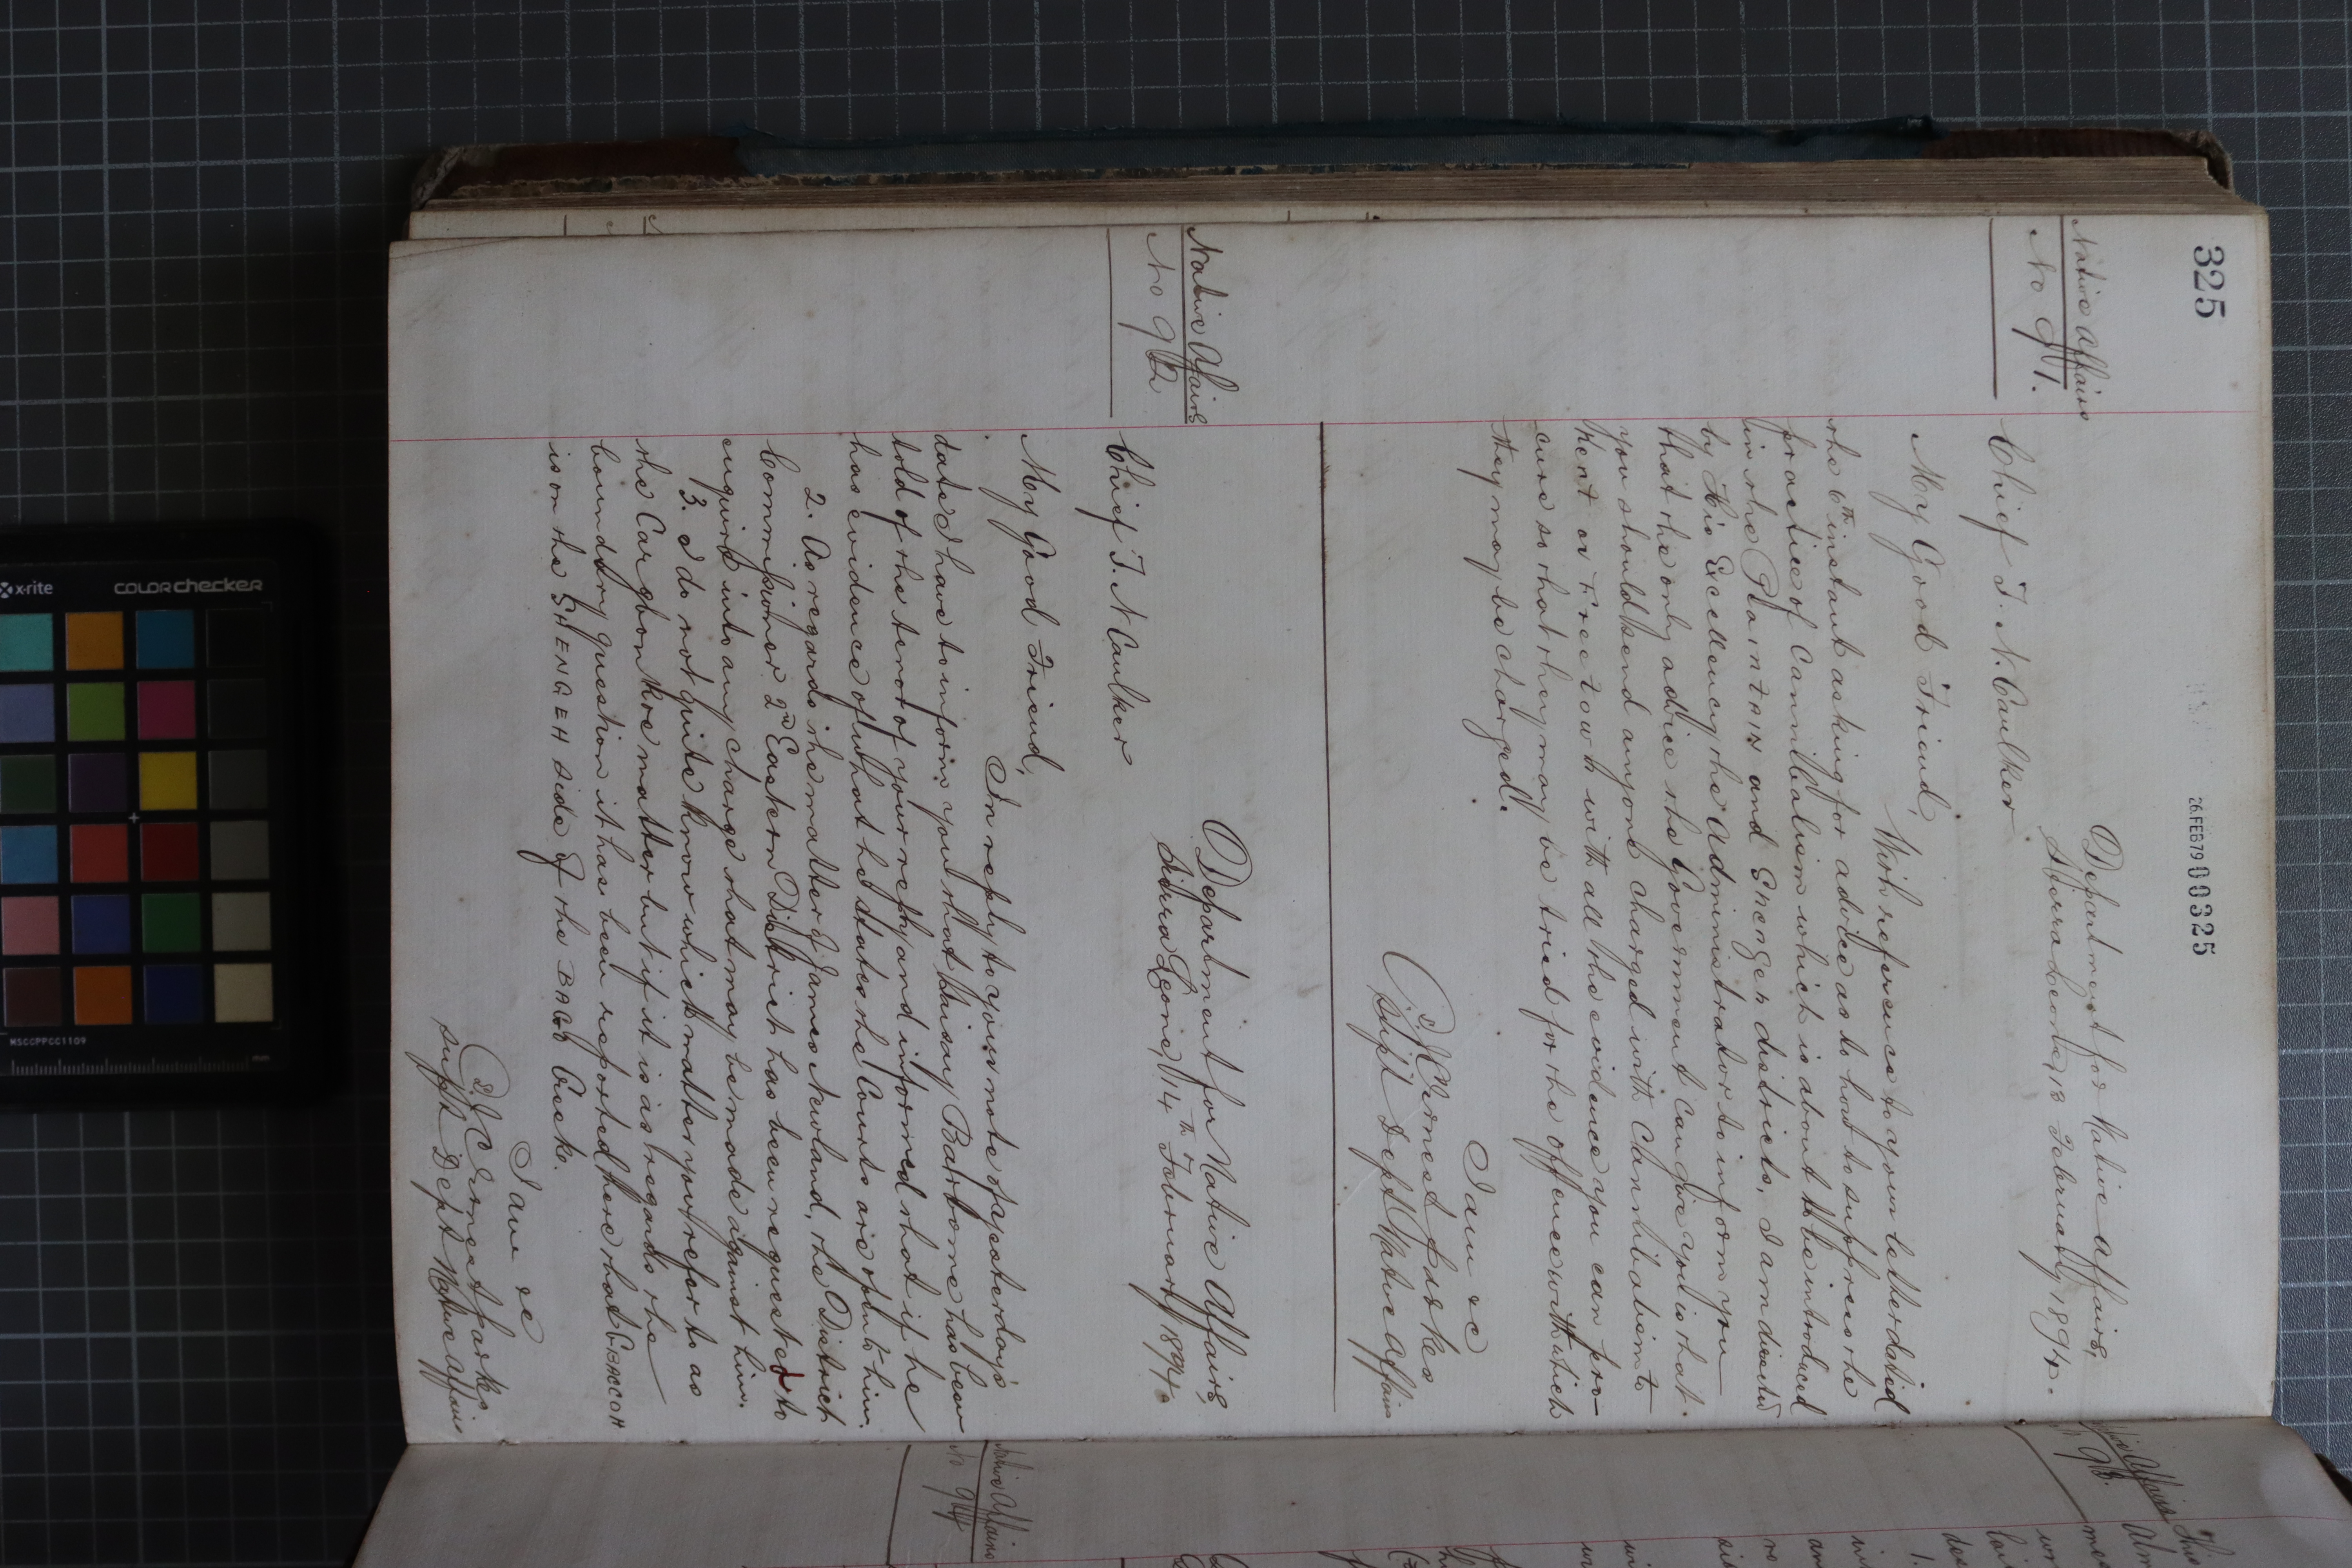 325
26 FEB 79 00325
Native Affairs
No 91.
Department for Native Affairs,
Sierra Leone, 13 February, 1894.
Chief T. N. Caulker
My Good Friend,
With reference to your letter dated
the 6th instant asking for advice as to how to suppress the
practice of Cannibalism which is about to be introduced
in the Plantain and Shengeh districts, I am directed
by His Excellency the Administrator to inform you
that the only advice the Government can give you is that
you should send anyone charged with Cannibalism to
Kent or Freetown with all the evidence you can pro-
cure so that they may be tried for the offence with which
they may be charged.
I am &c
J. C. Ernest Parkes
Supt Dept Native Affairs
Native Affairs
No 92
Department for Native Affairs,
Sierra Leone, 14th February 1894.
Chief T. N Caulker
My Good Friend,
In reply to your note of yesterday's
date I have to inform you that Caisay Barbome has been
told of the tenor of your reply and informed that if he
has evidence of what he states the Courts are open to him.
2. As regards the matter of James Newland, the District
Commissioner 2nd Eastern District has been requested to
enquire into any charge that may be made against him.
3. I do not quite know which matter you refer to as
the Cargbon Kre matter but if it is as regards the
boundary question it has been reported here that
is on the SHENGEH side of the BAGO Creek.
I am &c
J. C. Ernest Parkes
Supt Dept Native Affairs
Native Affairs
No 93.
Native Affairs
No 94
x-rite
COLORchecker
MSCCPPCC1109
mm